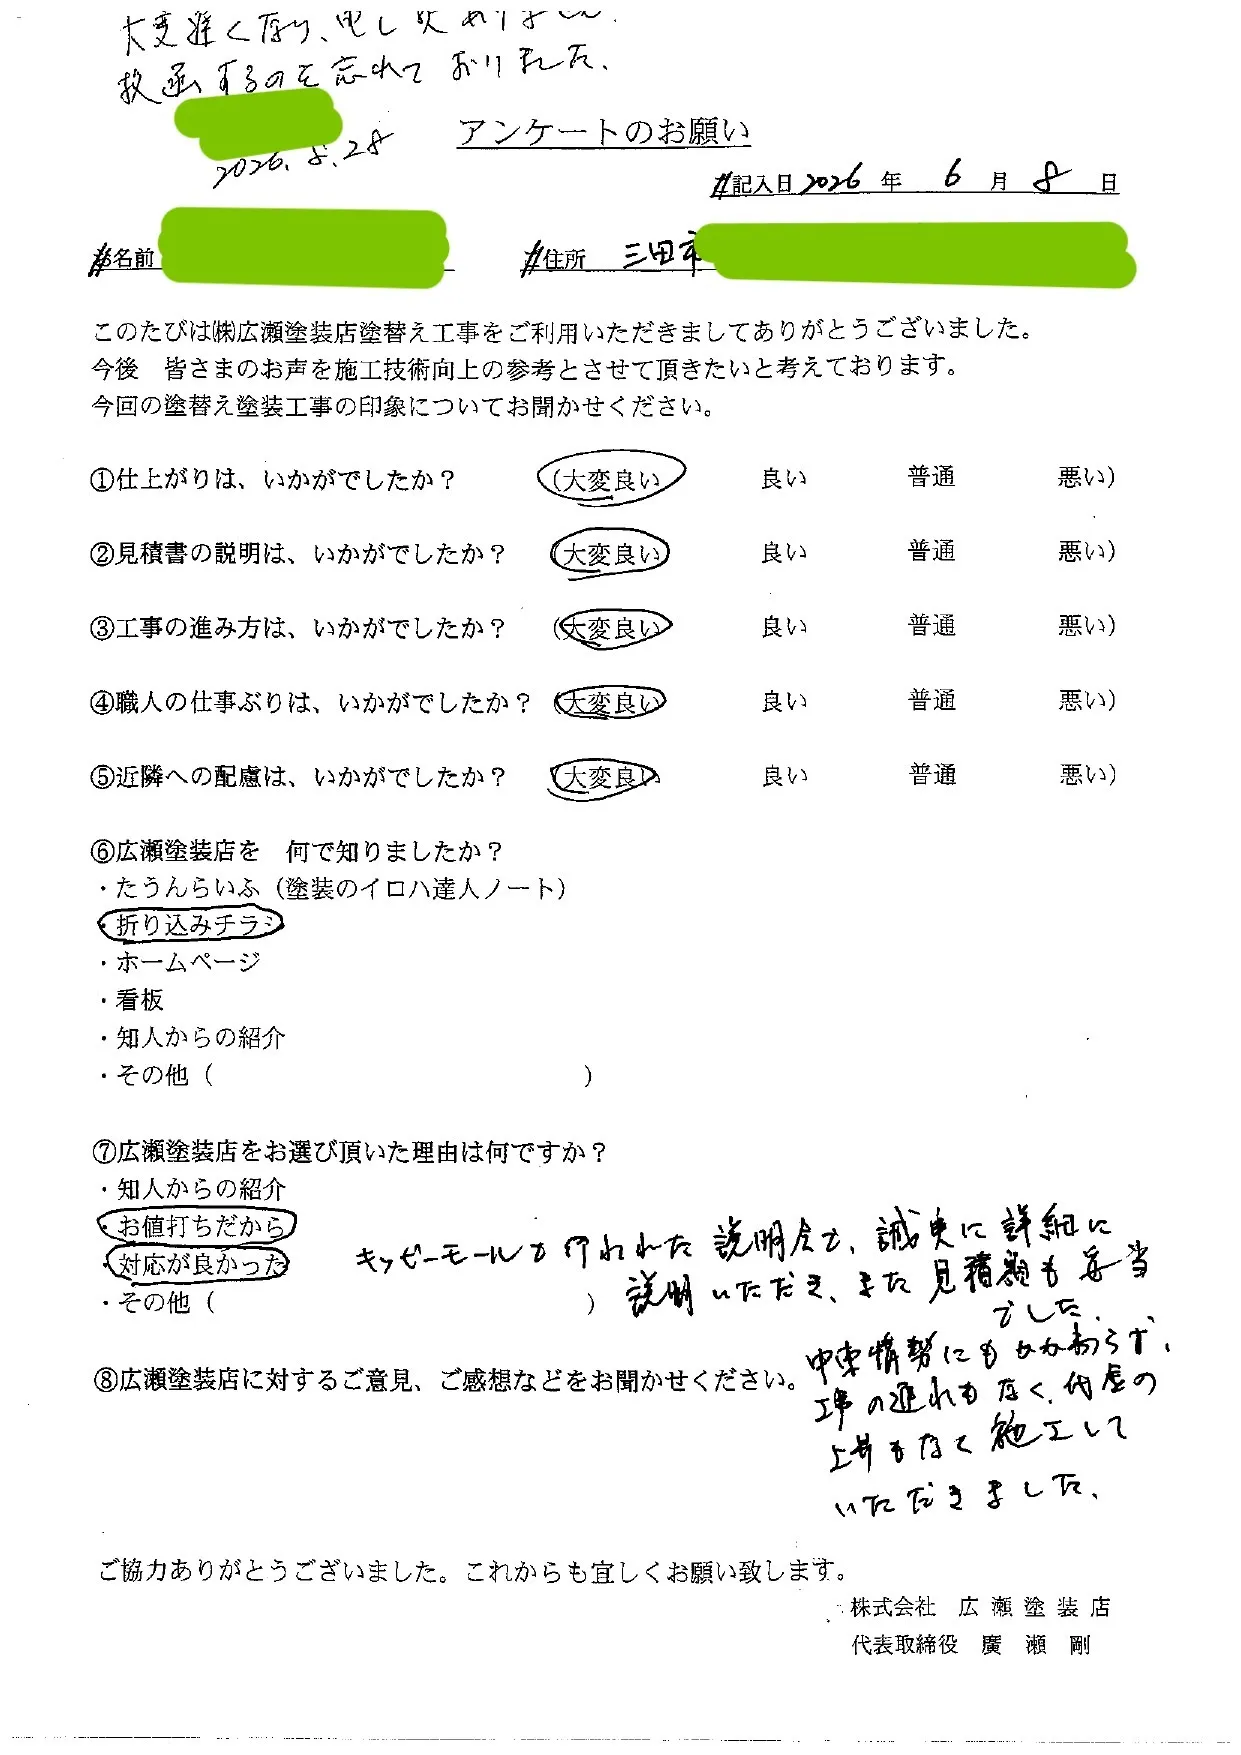 大変遅くなり、申し訳ありません
投函するのを忘れておりました.
2026.8.28
アンケートのお願い
記入日 2026 年 6 月 8 日
お名前
住所 三田市
このたびは㈱広瀬塗装店塗替え工事をご利用いただきましてありがとうございました。
今後 皆さまのお声を施工技術向上の参考とさせて頂きたいと考えております。
今回の塗替え塗装工事の印象についてお聞かせください。
①仕上がりは、いかがでしたか？ (大変良い 良い 普通 悪い)
②見積書の説明は、いかがでしたか？ (大変良い 良い 普通 悪い)
③工事の進み方は、いかがでしたか？ (大変良い 良い 普通 悪い)
④職人の仕事ぶりは、いかがでしたか？ (大変良い 良い 普通 悪い)
⑤近隣への配慮は、いかがでしたか？ (大変良い 良い 普通 悪い)
⑥広瀬塗装店を 何で知りましたか？
・たうんらいふ（塗装のイロハ達人ノート）
・折り込みチラシ
・ホームページ
・看板
・知人からの紹介
・その他（ ）
⑦広瀬塗装店をお選び頂いた理由は何ですか？
・知人からの紹介
・お値打ちだから
・対応が良かった
・その他（ ）
キッピーモールで行われた説明会で、誠実に詳細に
説明いただき、また見積額も妥当
でした.
⑧広瀬塗装店に対するご意見、ご感想などをお聞かせください。
中東情勢にもかかわらず、
工事の遅れもなく、代金の
上昇もなく施工して
いただきました.
ご協力ありがとうございました。これからも宜しくお願い致します。
株式会社 広瀬塗装店
代表取締役 廣瀬 剛